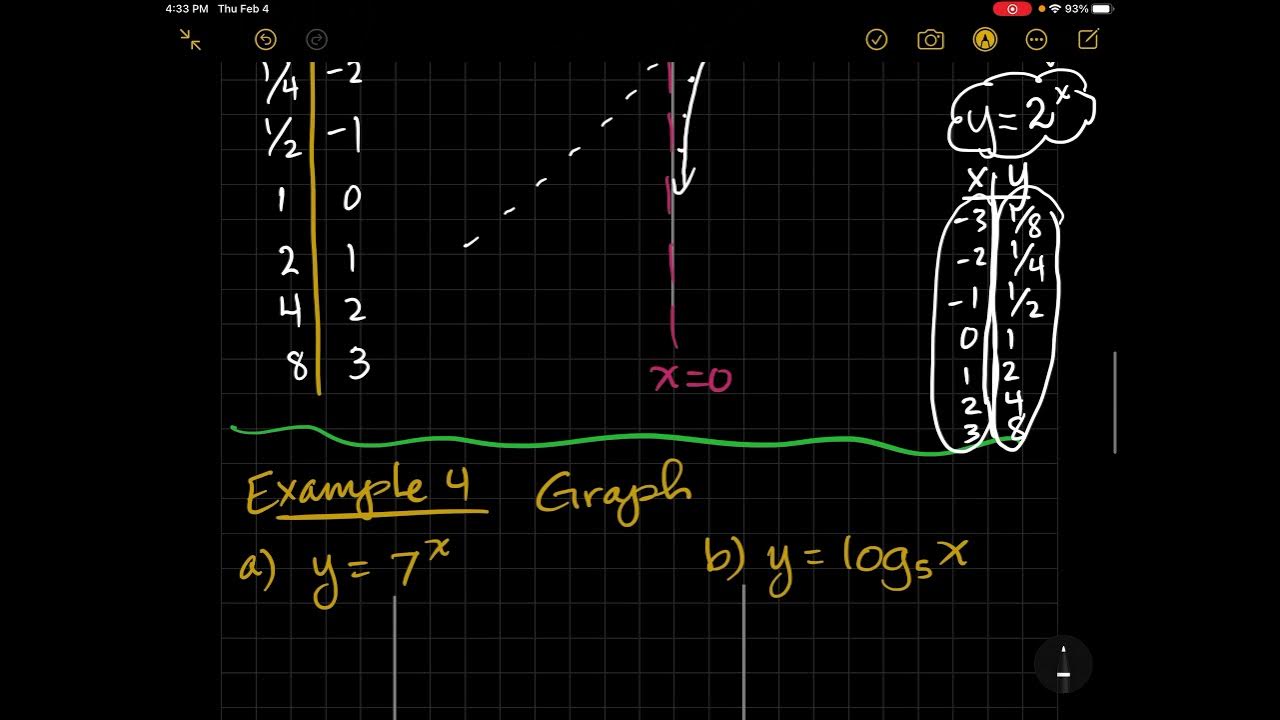 4:33 PM Thu Feb 4
93%
1/4 -2
1/2 -1
1 0
2 1
4 2
8 3
x=0
y=2^x
x y
-3 1/8
-2 1/4
-1 1/2
0 1
1 2
2 4
3 8
Example 4 Graph
a) y = 7^x
b) y = log₅x